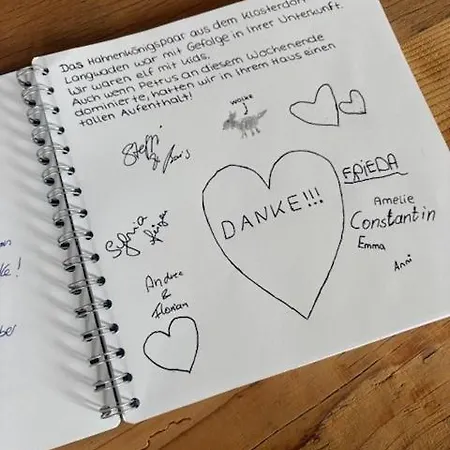 Das Hahnenkönigspaar aus dem Klosterdorf
Langwaden war mit Gefolge in Ihrer Unterkunft.
Wir waren elf mit Kids.
Auch wenn Petrus an diesem Wochenende
dominierte, hatten wir in Ihrem Haus einen
tollen Aufenthalt!
Wolke
Steffi
& Joris
DANKE!!!
FRIEDA
Amelie
Constantin
Emma
Anni
Sylvia
Andrea
&
Florian